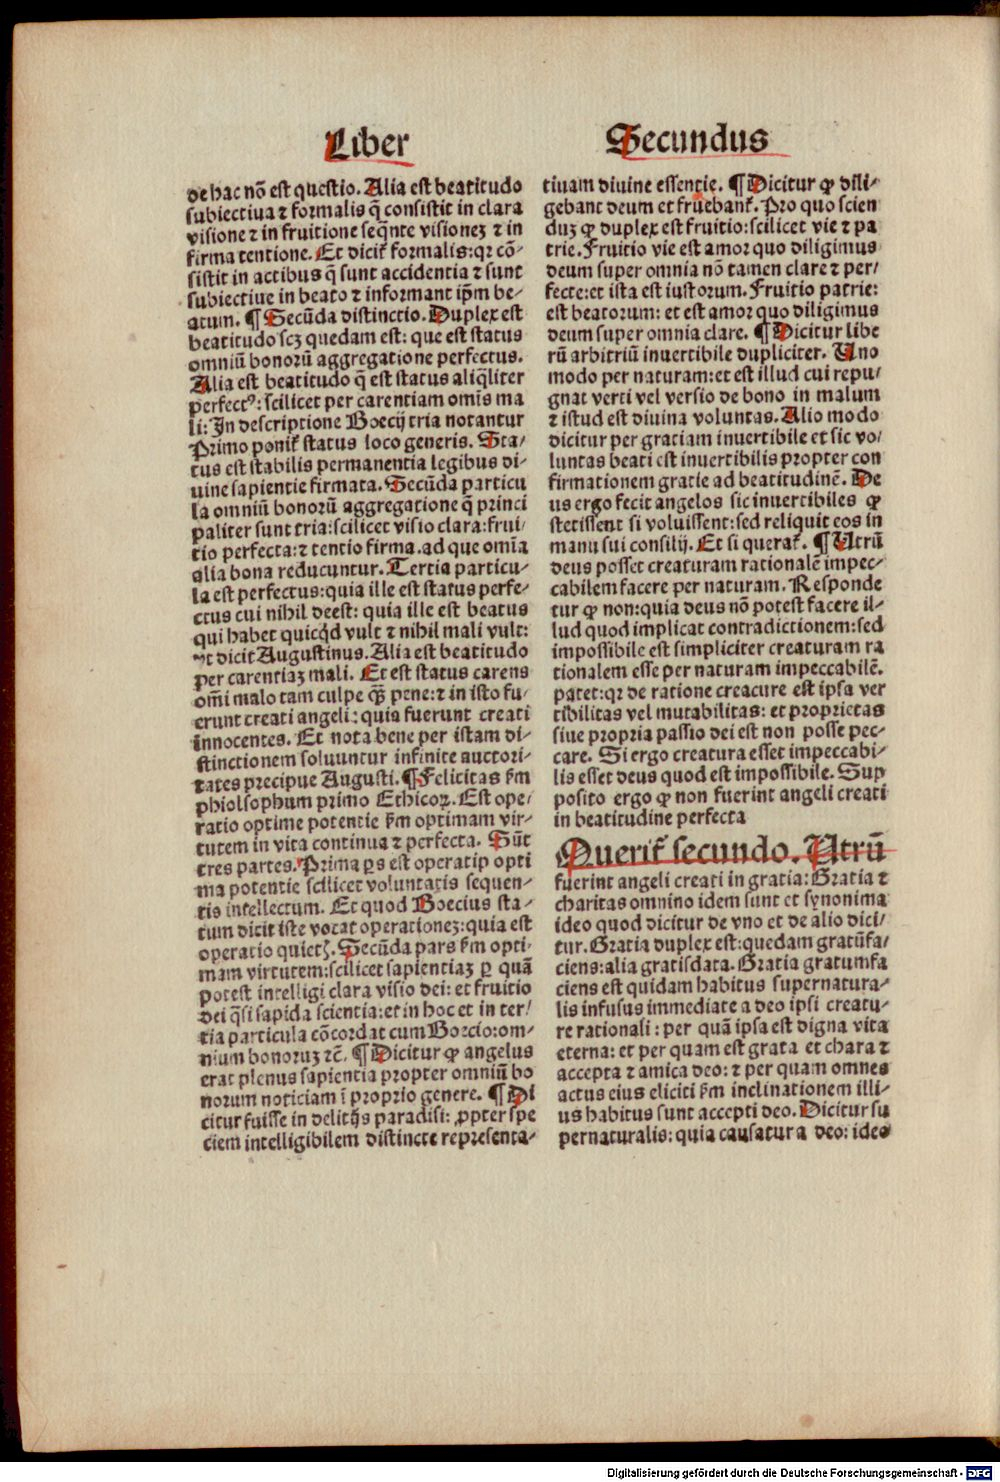 Liber
Secundus
de hac nō est questio. Alia est beatitudo
subiectiua ⁊ formalis q̄ consistit in clara
visione ⁊ in fruitione seq̄nte visioneꝫ ⁊ in
firma tentione. Et dicit᷑ formalis: qꝛ cō-
sistit in actibus q̄ sunt accidentia ⁊ sunt
subiectiue in beato ⁊ informant ip̄m be-
atum. ¶ Secūda distinctio. Duplex est
beatitudo scꝫ quedam est: que est status
omniū bonorū aggregatione perfectus.
Alia est beatitudo q̄ est status aliq̄liter
perfectꝰ: scilicet per carentiam omīs ma
li: In descriptione Boecij tria notantur
Primo ponit᷑ status loco generis. Sta/
tus est stabilis permanentia legibus di-
uine sapientie firmata. Secūda particu
la omniū bonorū aggregatione q̄ princi
paliter sunt tria: scilicet visio clara: frui/
tio perfecta: ⁊ tentio firma. ad que omīa
alia bona reducuntur. Tertia particu-
la est perfectus: quia ille est status perfe-
ctus cui nihil deest: quia ille est beatus
qui habet quicq̇d vult ⁊ nihil mali vult:
vt dicit Augustinus. Alia est beatitudo
per carentiaꝫ mali. Et est status carens
om̄i malo tam culpe q̄ꝫ pene: ⁊ in isto fu/
erunt creati angeli: quia fuerunt creati
innocentes. Et nota bene per istam di-
stinctionem soluuntur infinite auctori-
tates precipue Augusti. ¶ Felicitas ẜm
phiolsophum primo Ethicoꝝ. Est ope/
ratio optime potentie ẜm optimam vir-
tutem in vita continua ⁊ perfecta. Sūt
tres partes. Prima ꝑs est operatip opti
ma potentie scilicet voluntatis sequen-
tis intellectum. Et quod Boecius sta-
tum dicit iste vocat operationeꝫ: quia est
operatio quietꝭ. Secūda pars ẜm opti-
mam virtutem: scilicet sapientiaꝫ ꝑ quā
potest intelligi clara visio dei: et fruitio
dei q̄si sapida scientia: et in hoc et in ter/
tia particula cōcordat cum Boecio: om-
nium bonoruꝫ ⁊c̄. ¶ Dicitur ꝙ angelus
erat plenus sapientia propter omniū bo
norum noticiam ī proprio genere. ¶ Di
citur fuisse in delitijs paradisi: ꝓpter spe
ciem intelligibilem distincte representa-
tiuam diuine essentie. ¶ Dicitur ꝙ dili-
gebant deum et fruebant᷑. Pro quo scien
duꝫ ꝙ duplex est fruitio: scilicet vie ⁊ pa
trie. Fruitio vie est amor quo diligimus
deum super omnia nō tamen clare ⁊ per/
fecte: et ista est iustorum. Fruitio patrie:
est beatorum: et est amor quo diligimus
deum super omnia clare. ¶ Dicitur libe
rū arbitriū inuertibile dupliciter. Uno
modo per naturam: et est illud cui repu/
gnat verti vel versio de bono in malum
⁊ istud est diuina voluntas. Alio modo
dicitur per gratiam inuertibile et sic vo/
luntas beati est inuertibilis propter con
firmationem gratie ad beatitudinē. De
us ergo fecit angelos sic inuertibiles ꝙ
stetissent si voluissent: sed reliquit eos in
manu sui consilij. Et si querat᷑. ¶ Utrū
deus posset creaturam rationalē impec-
cabilem facere per naturam. Responde
tur ꝙ non: quia deus nō potest facere il-
lud quod implicat contradictionem: sed
impossibile est simpliciter creaturam ra
tionalem esse per naturam impeccabilē.
patet: qꝛ de ratione creacure est ipsa ver
tibilitas vel mutabilitas: et proprietas
siue propria passio dei est non posse pec-
care. Si ergo creatura esset impeccabi-
lis esset deus quod est impossibile. Sup
posito ergo ꝙ non fuerint angeli creati
in beatitudine perfecta
Querit᷑ secundo. Utrū
fuerint angeli creati in gratia: Gratia ⁊
charitas omnino idem sunt et synonima
ideo quod dicitur de vno et de alio dici/
tur. Gratia duplex est: quedam gratūfa/
ciens: alia gratisdata. Gratia gratumfa
ciens est quidam habitus supernatura-
lis infusus immediate a deo ipsi creatu-
re rationali: per quā ipsa est digna vita
eterna: et per quam est grata et chara ⁊
accepta ⁊ amica deo: ⁊ per quam omnes
actus eius eliciti ẜm inclinationem illi-
us habitus sunt accepti deo. Dicitur su
pernaturalis: quia causatur a deo: ideo
Digitalisierung gefördert durch die Deutsche Forschungsgemeinschaft - DFG